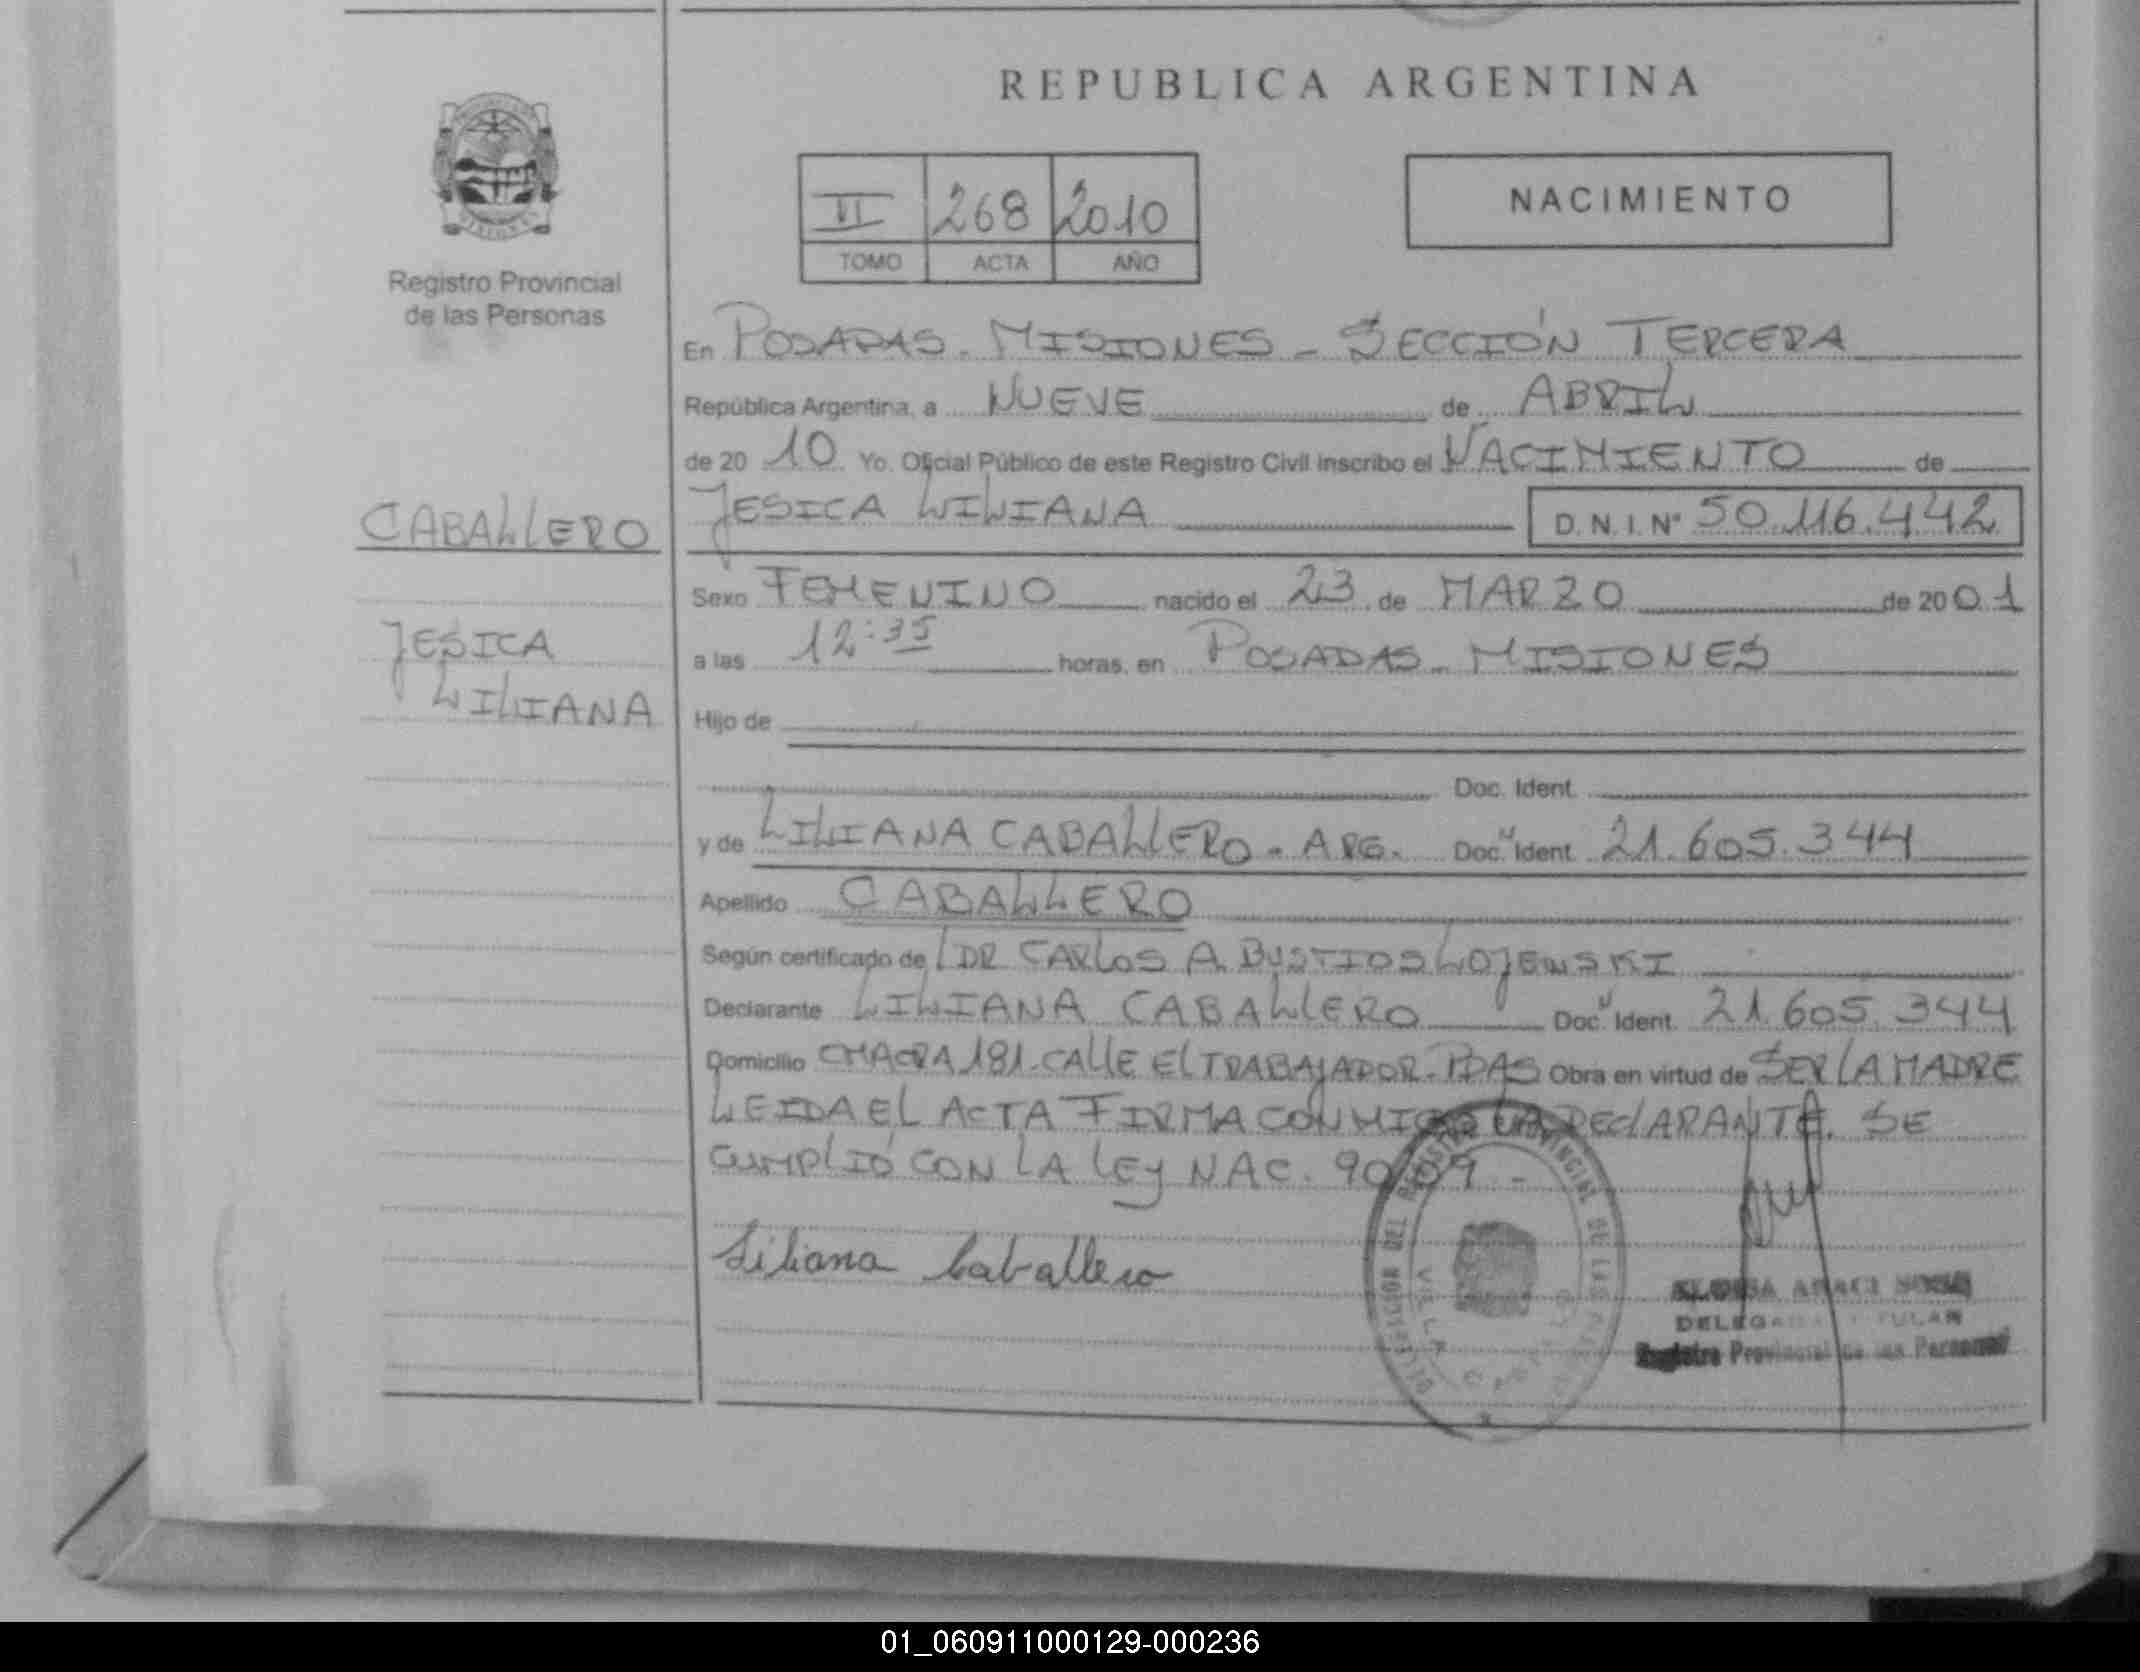 REPUBLICA ARGENTINA
VI 268 2010
TOMO ACTA AÑO
NACIMIENTO
Registro Provincial
de las Personas
CABALLERO
JESICA
LILIANA
En POSADAS - MISIONES - SECCIÓN TERCERA
República Argentina, a NUEVE de ABRIL
de 20 10 Yo. Oficial Público de este Registro Civil inscribo el NACIMIENTO de
JESICA LILIANA D.N.I. Nº 50.116.442
Sexo FEMENINO nacido el 23 de MARZO de 20 01
a las 12:35 horas, en POSADAS - MISIONES
Hijo de
Doc. Ident.
y de LILIANA CABALLERO - ARG. Doc. Ident. 21.605.344
Apellido CABALLERO
Según certificado de DR CARLOS A. BUSTIOS LOJEWSKI
Declarante LILIANA CABALLERO Doc. Ident. 21.605.344
Domicilio CHACRA 181 - CALLE EL TRABAJADOR - PDAS Obra en virtud de SER LA MADRE
LEIDA EL ACTA FIRMA CONMIGO LA DECLARANTE. SE
CUMPLIÓ CON LA LEY NAC. 90/09 -
Liliana Caballero
DELEGACION DEL REGISTRO PROVINCIAL DE LAS
VILLA
Registro Provincial de las Personas
01_060911000129-000236